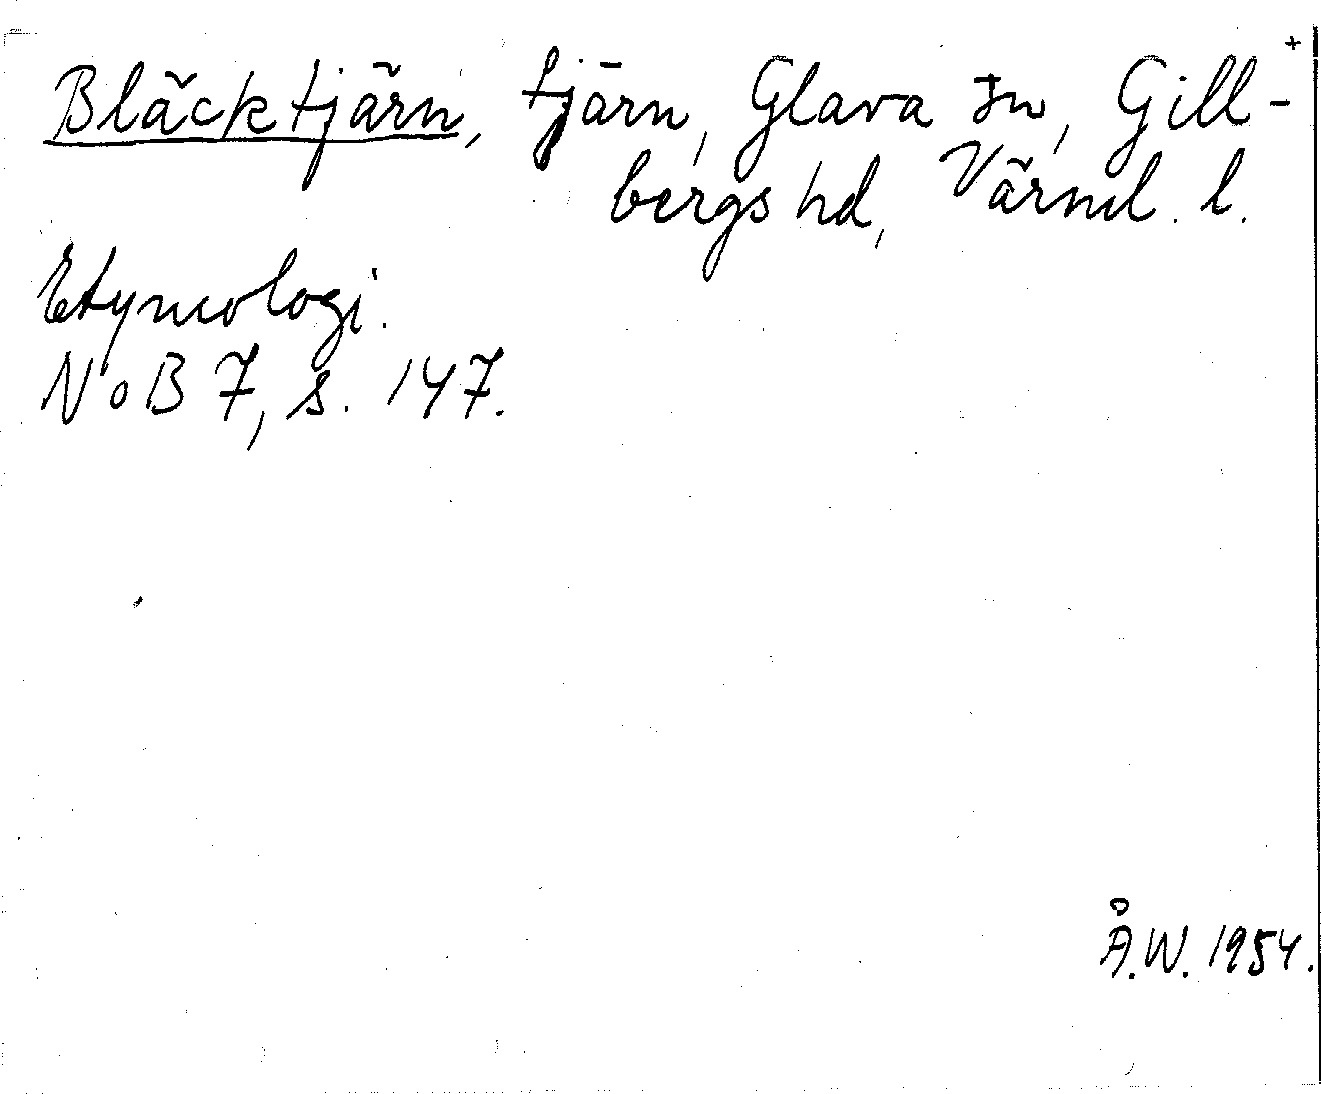 +
Bläcktjärn, tjärn, Glava sn, Gill-
bergs hd, Värml. l.
Etymologi.
NoB 7, s. 147.
Å.W. 1954.